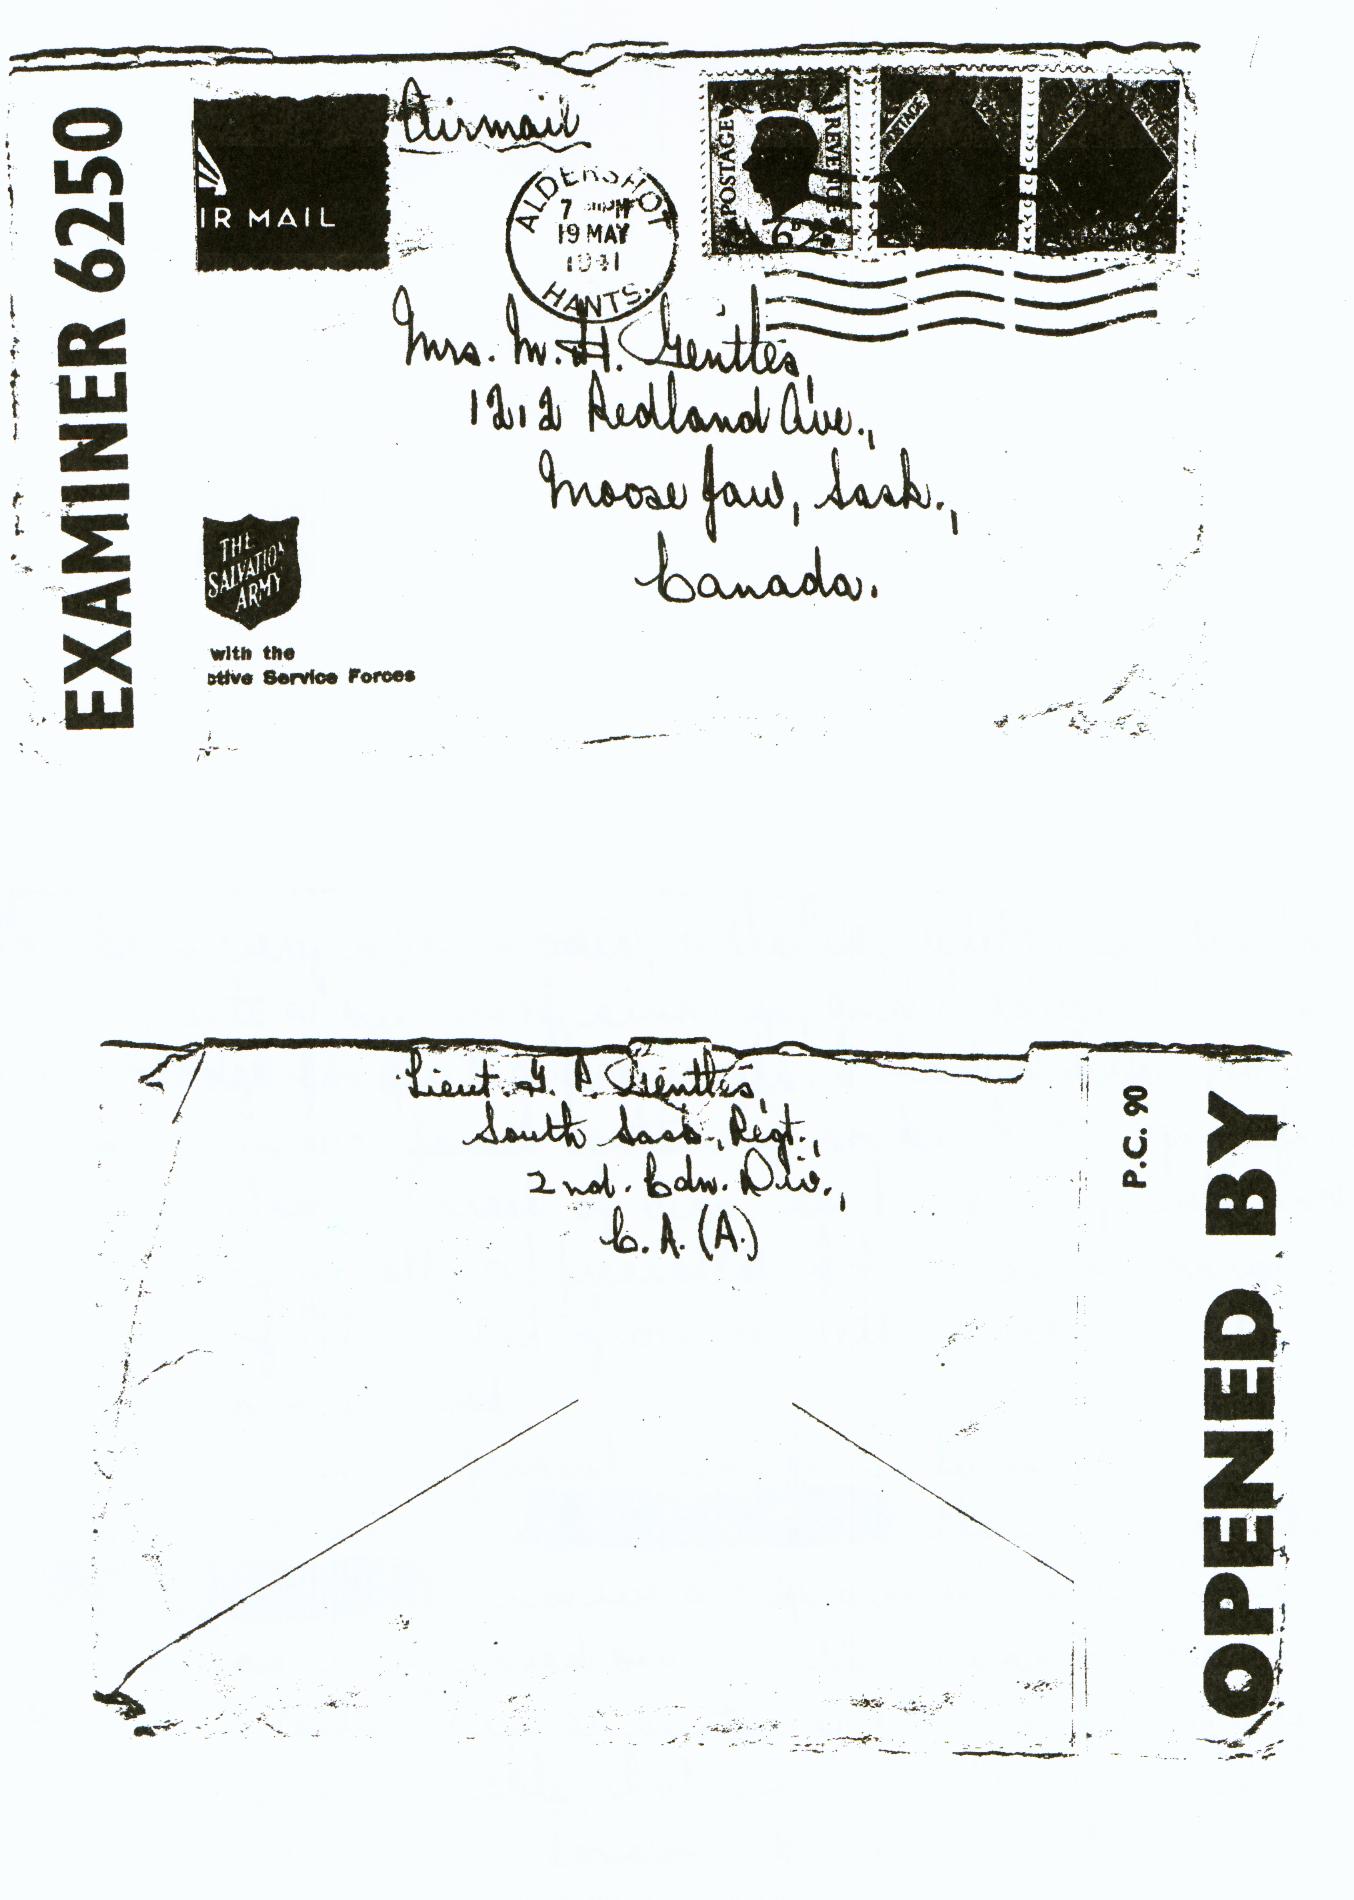 EXAMINER 6250
IR MAIL
Airmail
ALDERSHOT
7 PM
19 MAY
1941
HANTS.
POSTAGE REVENUE
Mrs. M. H. Gentles,
1212 Redland Ave.,
Moose Jaw, Sask.,
Canada.
THE
SALVATION
ARMY
with the
ctive Service Forces
Lieut. G. P. Gentles,
South Sask. Regt.,
2nd. Cdn. Div.,
C. A. (A.)
P.C. 90
OPENED BY